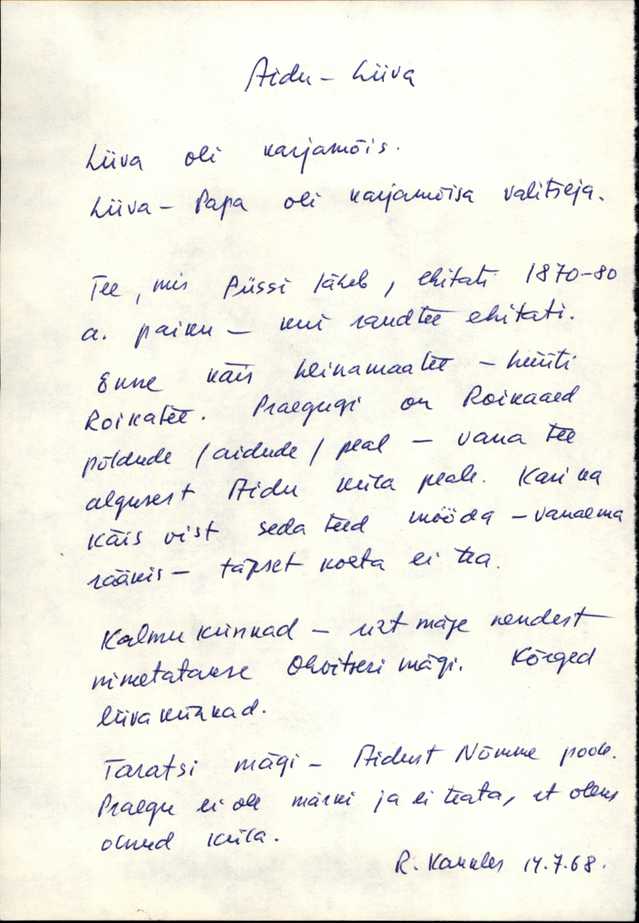 Aidu – Liiva
Liiva oli karjamõis.
Liiva – Papa oli karjamõisa valitseja.
Tee, mis Püssi läheb, ehitati 1870–80
a. paiku – kui raudtee ehitati.
Enne käis heinamaatee – hüüti
Roikatee. Praegugi on Roikaaed
põldude / aidude / peal – vana tee
algusest Aidu küla peale. Karina
käis vist seda teed mööda – vanaema
rääkis – täpset kohta ei tea.
Kalmu künkad – üht mäge nendest
nimetatakse Ohvitseri mägi. Kõrged
liivakünkad.
Taratsi mägi – Aidust Nõmme poole.
Praegu ei ole märki ja ei teata, et oleks
olnud küla.
R. 14.7.68.